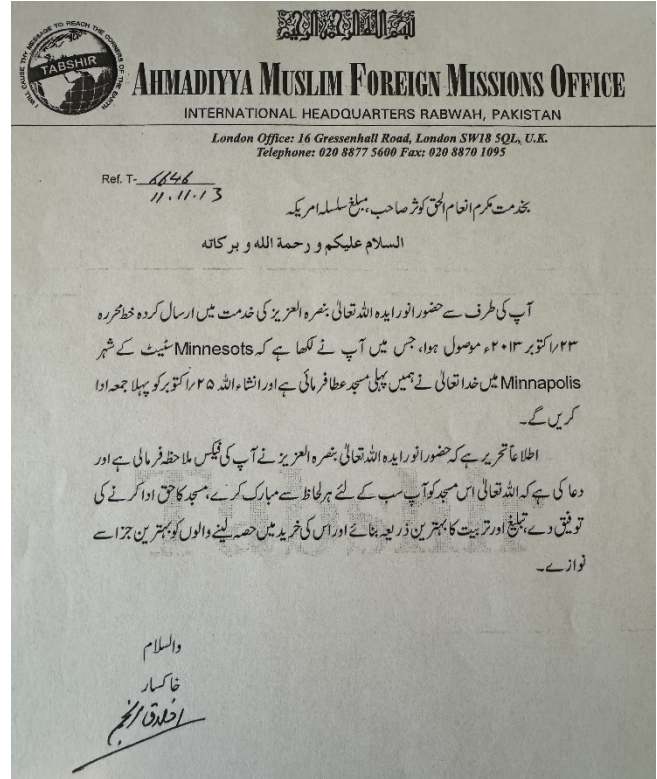 بسم الله الرحمن الرحيم
I WILL CAUSE THY MESSAGE TO REACH THE CORNERS OF THE EARTH
TABSHIR
AHMADIYYA MUSLIM FOREIGN MISSIONS OFFICE
INTERNATIONAL HEADQUARTERS RABWAH, PAKISTAN
London Office: 16 Gressenhall Road, London SW18 5QL, U.K.
Telephone: 020 8877 5600 Fax: 020 8870 1095
Ref. T- 6646
11.11.13
بخدمت مکرم انعام الحق کوثر صاحب، مبلغ سلسلہ امریکہ
السلام علیکم و رحمة الله و برکاته
آپ کی طرف سے حضور انور ایدہ اللہ تعالیٰ بنصرہ العزیز کی خدمت میں ارسال کردہ خط محررہ
۲۳؍اکتوبر ۲۰۱۳ء موصول ہوا، جس میں آپ نے لکھا ہے کہ Minnesots سٹیٹ کے شہر
Minnapolis میں خدا تعالیٰ نے ہمیں پہلی مسجد عطا فرمائی ہے اور انشاء اللہ ۲۵؍اکتوبر کو پہلا جمعہ ادا
کریں گے۔
اطلاعاً تحریر ہے کہ حضور انور ایدہ اللہ تعالیٰ بنصرہ العزیز نے آپ کی فیکس ملاحظہ فرمالی ہے اور
دعا کی ہے کہ اللہ تعالیٰ اس مسجد کو آپ سب کے لئے ہر لحاظ سے مبارک کرے، مسجد کا حق ادا کرنے کی
توفیق دے، تبلیغ اور تربیت کا بہترین ذریعہ بنائے اور اس کی خرید میں حصہ لینے والوں کو بہترین جزا سے
نوازے۔
Tabshir
والسلام
خاکسار
اخلاق انجم